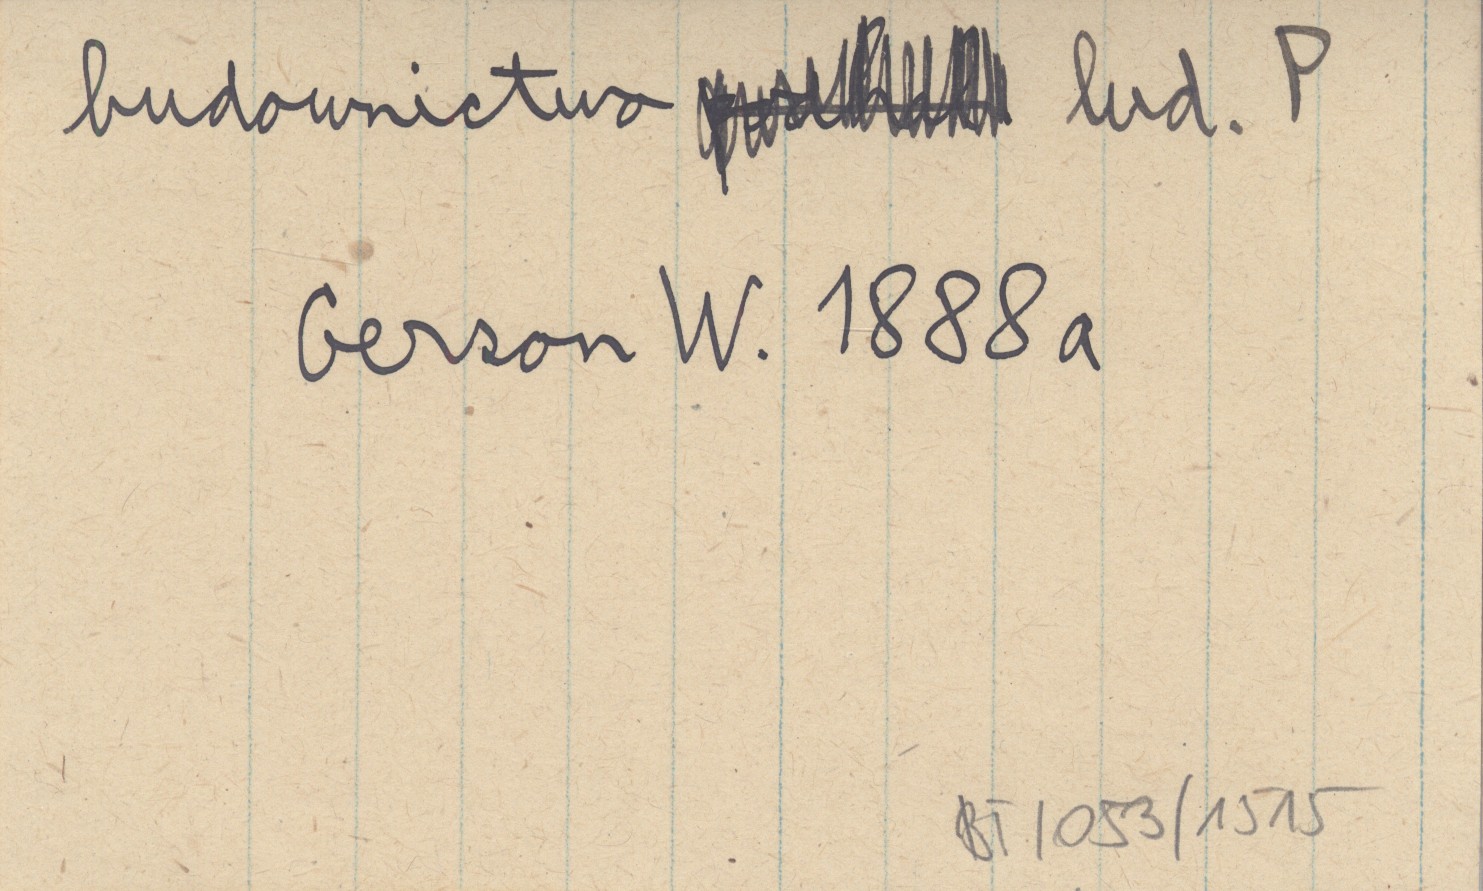 budownictwo lud. P
Gerson W. 1888a
BT/053/1515